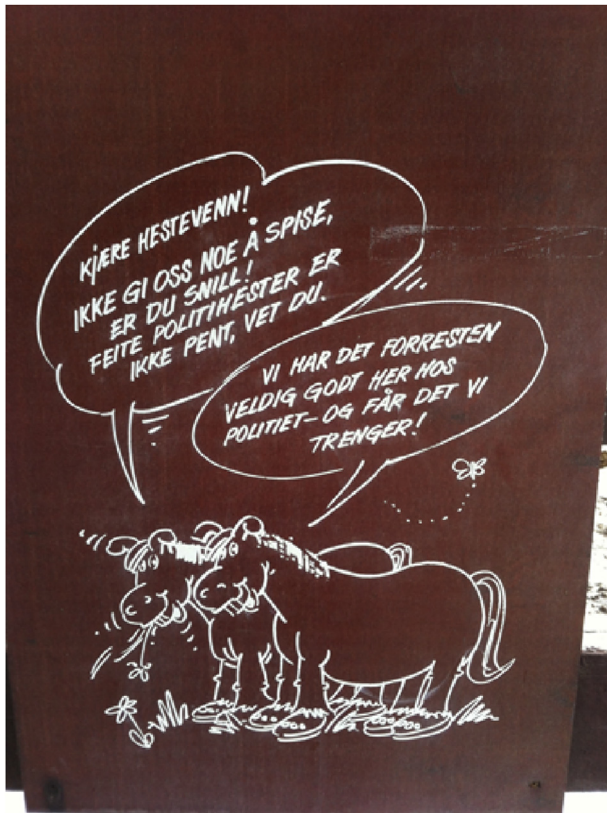 KJÆRE HESTEVENN!
IKKE GI OSS NOE Å SPISE,
ER DU SNILL!
FEITE POLITIHESTER ER
IKKE PENT, VET DU.
VI HAR DET FORRESTEN
VELDIG GODT HER HOS
POLITIET- OG FÅR DET VI
TRENGER!